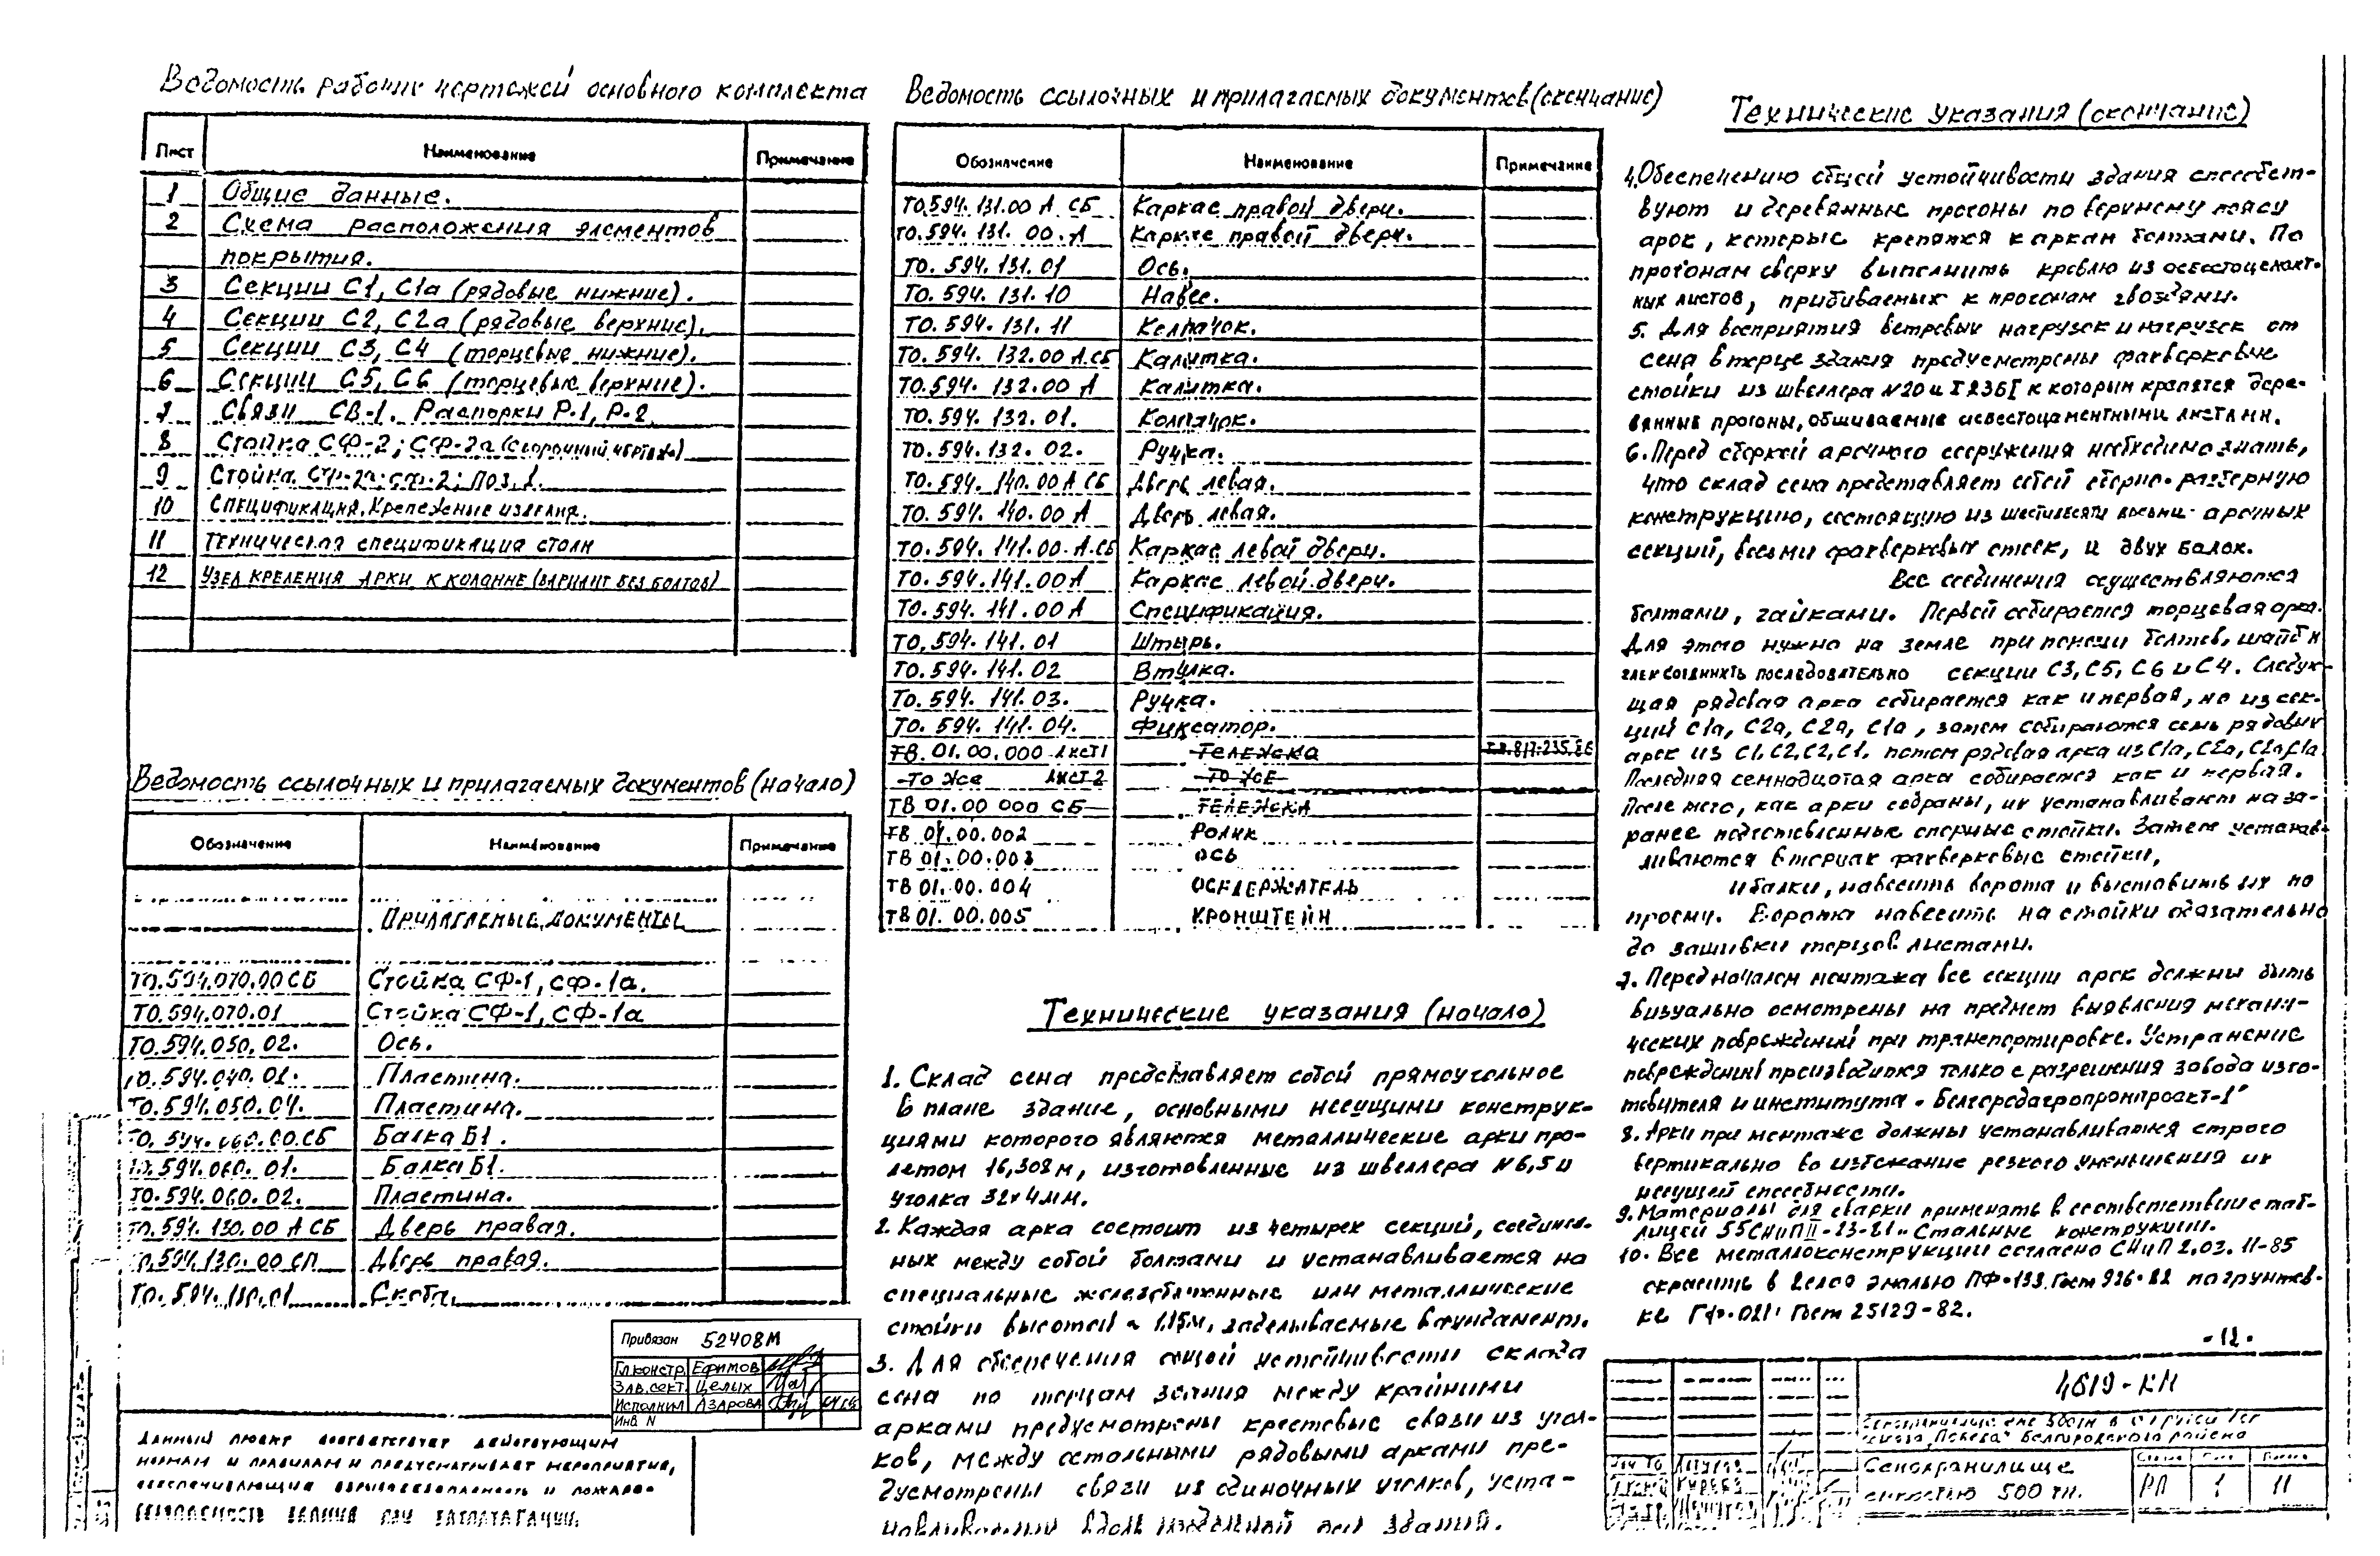 Ведомость рабочих чертежей основного комплекта
Лист Наименование Примечание
1 Общие данные.
2 Схема расположения элементов
покрытия.
3 Секции С1, С1а (рядовые нижние).
4 Секции С2, С2а (рядовые верхние).
5 Секции С3, С4 (торцевые нижние).
6 Секции С5, С6 (торцевые верхние).
7 Связи СВ-1. Распорки Р-1, Р-2
8 Стойка СФ-2; СФ-2а (сборочный чертеж)
9 Стойка СФ-2а; СФ-2; поз. 1.
10 Спецификация. Крепежные изделия.
11 Техническая спецификация стали
12 Узел крепления арки к колонне (вариант без болтов)
Ведомость ссылочных и прилагаемых документов (начало)
Обозначение Наименование Примечание
Прилагаемые документы
ТО.594.070.00 СБ Стойка СФ-1, СФ-1а.
ТО.594.070.01 Стойка СФ-1, СФ-1а
ТО.594.050.02. Ось.
ТО.594.040.01. Пластина.
ТО.594.050.04. Пластина.
ТО.594.060.00.СБ Балка Б1.
ТО.594.060.01. Балка Б1.
ТО.594.060.02. Пластина.
ТО.594.130.00 А СБ Дверь правая.
ТО.594.130.00 СП Дверь правая.
ТО.594.130.01 Скоба.
Привязан 52408М
Гл.констр. Ефимов
Зав.сект. Целых
Исполнил Азарова
Инв. N
Данный проект соответствует действующим
нормам и правилам и предусматривает мероприятия,
обеспечивающие взрывобезопасность и пожаро-
безопасность здания при эксплуатации.
Ведомость ссылочных и прилагаемых документов (окончание)
Обозначение Наименование Примечание
ТО.594.131.00 А СБ Каркас правой двери.
ТО.594.131.00.А Каркас правой двери.
ТО.594.131.01 Ось.
ТО.594.131.10 Навес.
ТО.594.131.11 Колпачок.
ТО.594.132.00 А.СБ Калитка.
ТО.594.132.00 А Калитка.
ТО.594.132.01. Колпачок.
ТО.594.132.02. Ручка.
ТО.594.140.00 А СБ Дверь левая.
ТО.594.140.00 А Дверь левая.
ТО.594.141.00.А.СБ Каркас левой двери.
ТО.594.141.00 А Каркас левой двери.
ТО.594.141.00 А Спецификация.
ТО.594.141.01 Штырь.
ТО.594.141.02 Втулка.
ТО.594.141.03. Ручка.
ТО.594.141.04. Фиксатор.
ТВ.01.00.000 лист1 Тележка
То же лист 2 То же
ТВ 01.00 000 СБ Тележка
ТВ 01.00.002 Ролик
ТВ 01.00.003 Ось
ТВ 01.00.004 Оседержатель
ТВ 01.00.005 Кронштейн
Технические указания (начало)
1. Склад сена представляет собой прямоугольное
в плане здание, основными несущими конструк-
циями которого являются металлические арки про-
летом 16,308 м, изготовленные из швеллера №6,5 и
уголка 32х4мм.
2. Каждая арка состоит из четырех секций, соединен-
ных между собой болтами и устанавливается на
специальные железобетонные или металлические
стойки высотой ~ 1.15м, заделываемые в фундамент.
3. Для обеспечения общей устойчивости склада
сена по торцам здания между крайними
арками предусмотрены крестовые связи из угол-
ков, между остальными рядовыми арками пре-
дусмотрены связи из одиночных уголков, уста-
навливаемые вдоль продольной оси здания.
Технические указания (окончание)
4. Обеспечению общей устойчивости здания способст-
вуют и деревянные прогоны по верхнему поясу
арок, которые крепятся к аркам болтами. По
прогонам сверху выполнить кровлю из асбестоцемент-
ных листов, прибиваемых к прогонам гвоздями.
5. Для восприятия ветровых нагрузок и нагрузок от
сена в торце здания предусмотрены фахверковые
стойки из швеллера №20 и I 23Б1 к которым крепятся дере-
вянные прогоны, обшиваемые асбестоцементными листами.
6. Перед сборкой арочного сооружения необходимо знать,
что склад сена представляет собой сборно-разборную
конструкцию, состоящую из шестидесяти восьми арочных
секций, восьми фахверковых стоек, и двух балок.
Все соединения осуществляются
болтами, гайками. Первой собирается торцевая арка.
Для этого нужно на земле при помощи болтов, шайб и
гаек соединить последовательно секции С3, С5, С6 и С4. Следую-
щая рядовая арка собирается как и первая, но из сек-
ций С1а, С2а, С2а, С1а, затем собираются семь рядовых
арок из С1, С2, С2, С1, потом рядовая арка из С1а, С2а, С2а, С1а.
Последняя семнадцатая арка собирается как и первая.
После того, как арки собраны, их устанавливают на за-
ранее подготовленные опорные стойки. Затем устанав-
ливаются в торцах фахверковые стойки,
и балки, навесить ворота и выставить их по
проему. Ворота навесить на стойки обязательно
до зашивки торцов листами.
7. Перед началом монтажа все секции арок должны быть
визуально осмотрены на предмет выявления механи-
ческих повреждений при транспортировке. Устранение
повреждений производится только с разрешения завода изго-
товителя и института "Белгородагропромпроект-1"
8. Арки при монтаже должны устанавливаться строго
вертикально во избежание резкого уменьшения их
несущей способности.
9. Материалы для сварки применять в соответствии с таб-
лицей 55 СНиП II-23-81 "Стальные конструкции.
10. Все металлоконструкции согласно СНиП 2.03.11-85
окрасить в 2 слоя эмалью ПФ-133 Гост 926-82 по грунтов-
ке ГФ-021 Гост 25129-82.
-12-
4619-КМ
Сенохранилище
емкостью 500 тн.
РП 1 11